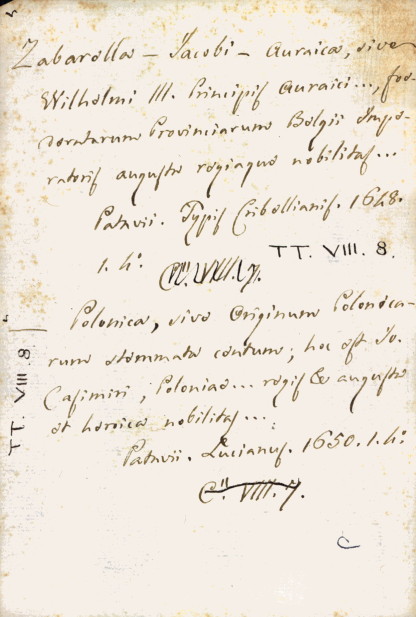 Zabarella - Jacobi - Auraica, sive
Wilhelmi III. Principis Auraici..., foe-
deratarum Provinciarum Belgii Impe-
ratoris augusta regiaque nobilitas...
Patavii. Typis Cribellianis. 1648.
1. 4º.
TT. VIII. 8.
Polonica, sive Originum Polonica-
rum stemmata centum; hoc est Jo.
Casimiri, Poloniae... regis &c augusta
et heroica nobilitas...
Patavii. Lucianus. 1650. 1. 4º.
C". VIII. 7.
TT. VIII. 8
C